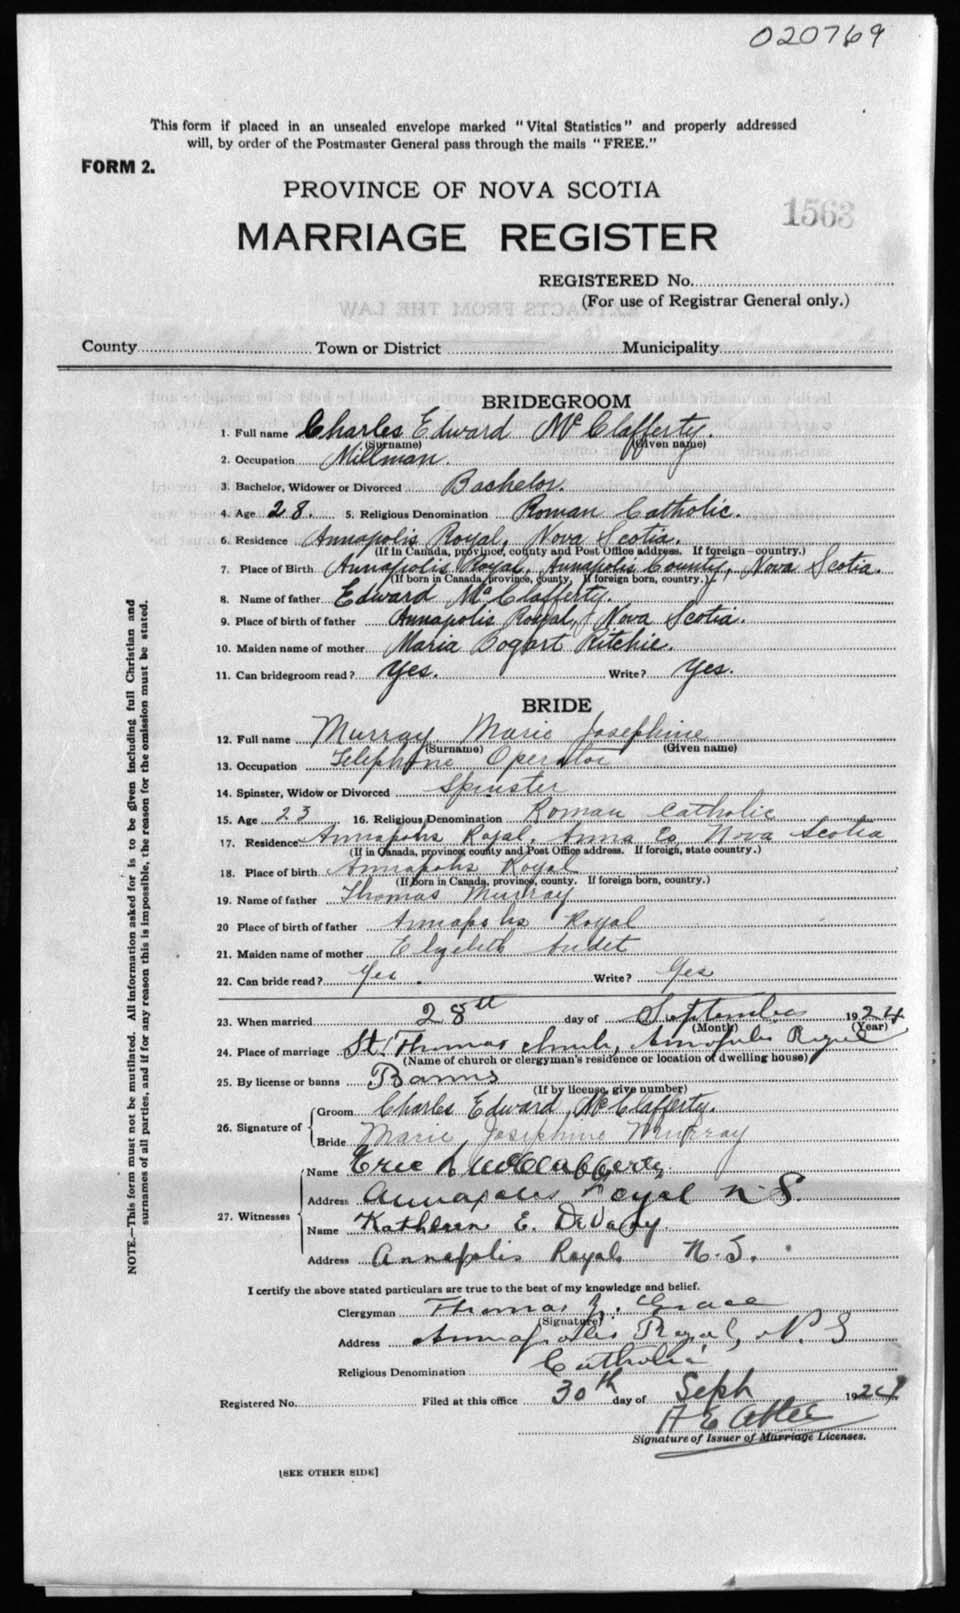 020769
This form if placed in an unsealed envelope marked "Vital Statistics" and properly addressed
will, by order of the Postmaster General pass through the mails "FREE."
FORM 2.
PROVINCE OF NOVA SCOTIA
1563
MARRIAGE REGISTER
REGISTERED No.
(For use of Registrar General only.)
EXTRACTS FROM THE LAW
County Town or District Municipality
BRIDEGROOM
1. Full name Charles Edward McClafferty.
(Surname) (Given name)
2. Occupation Millman.
3. Bachelor, Widower or Divorced Bachelor.
4. Age 28. 5. Religious Denomination Roman Catholic.
6. Residence Annapolis Royal, Nova Scotia.
(If in Canada, province, county and Post Office address. If foreign—country.)
7. Place of Birth Annapolis Royal, Annapolis County, Nova Scotia.
(If born in Canada, province, county, If foreign born, country.)
8. Name of father Edward McClafferty.
9. Place of birth of father Annapolis Royal, Nova Scotia.
10. Maiden name of mother Maria Bogart Ritchie.
11. Can bridegroom read? Yes. Write? Yes.
BRIDE
12. Full name Murray Marie Josephine
(Surname) (Given name)
13. Occupation Telephone Operator
14. Spinster, Widow or Divorced Spinster
15. Age 23 16. Religious Denomination Roman Catholic
17. Residence Annapolis Royal, Anna Co Nova Scotia
(If in Canada, province, county and Post Office address. If foreign, state country.)
18. Place of birth Annapolis Royal
(If born in Canada, province, county. If foreign born, country.)
19. Name of father Thomas Murray
20 Place of birth of father Annapolis Royal
21. Maiden name of mother
22. Can bride read? Yes Write? Yes
23. When married 28th day of September 1924
(Month) (Year)
24. Place of marriage St. Thomas Church, Annapolis Royal
(Name of church or clergyman's residence or location of dwelling house)
25. By license or banns Banns
(If by license, give number)
26. Signature of Groom Charles Edward McClafferty.
Bride Marie Josephine Murray
27. Witnesses Name Eric McClafferty
Address Annapolis Royal N.S.
Name Kathleen E. DeVany
Address Annapolis Royal N.S.
I certify the above stated particulars are true to the best of my knowledge and belief.
Clergyman Thomas J. Grace
(Signature)
Address Annapolis Royal, N.S
Religious Denomination Catholic
Registered No. Filed at this office 30th day of Sept 1924
A E Atlee
Signature of Issuer of Marriage Licenses.
[SEE OTHER SIDE]
NOTE.—This form must not be mutilated. All information asked for is to be given including full Christian and
surnames of all parties, and if for any reason this is impossible, the reason for the omission must be stated.